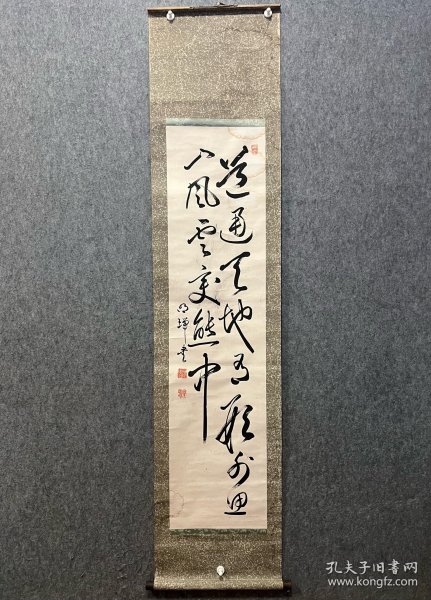 道通天地有形外思
入風雲変態中
書
孔夫子旧书网
www.kongfz.com